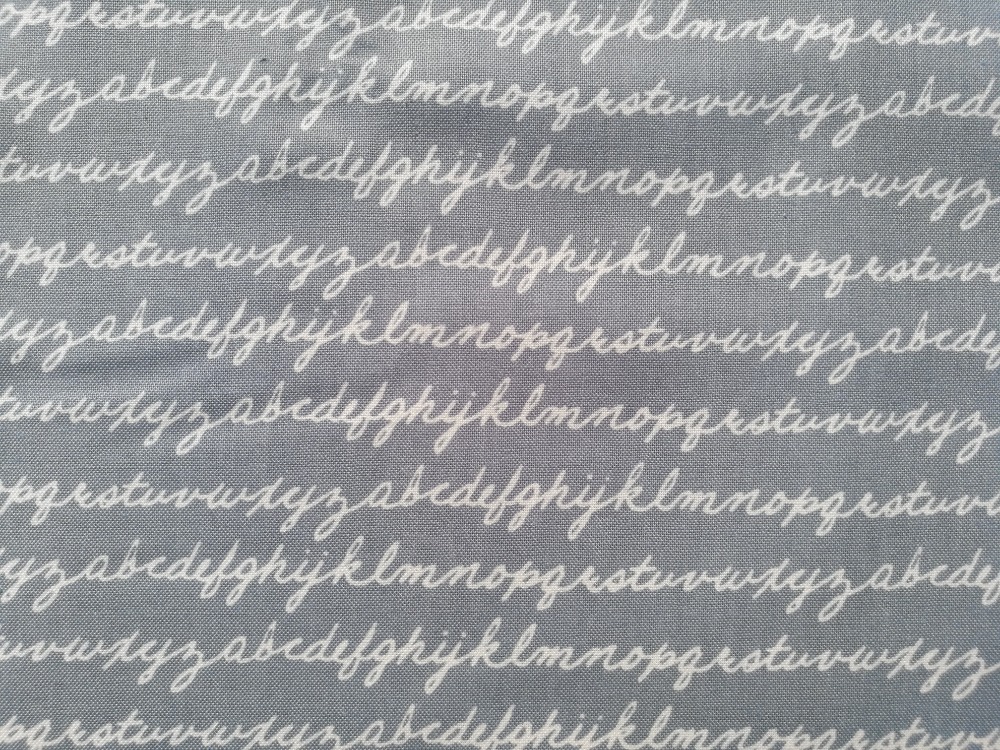 opqrstuvwxyzabcdefghijklmnopqrstuv
xyzabcdefghijklmnopqrstuvwxyzabcde
tuvwxyzabcdefghijklmnopqrstuvwxyz
opqrstuvwxyzabcdefghijklmnopqrstuv
xyzabcdefghijklmnopqrstuvwxyzabcdef
tuvwxyzabcdefghijklmnopqrstuvwxyz
opqrstuvwxyzabcdefghijklmnopqrstuv
xyzabcdefghijklmnopqrstuvwxyzabcdef
uvwxyzabcdefghijklmnopqrstuvwxyz
opqrstuvwxyzabcdefghijklmnopqrstuv